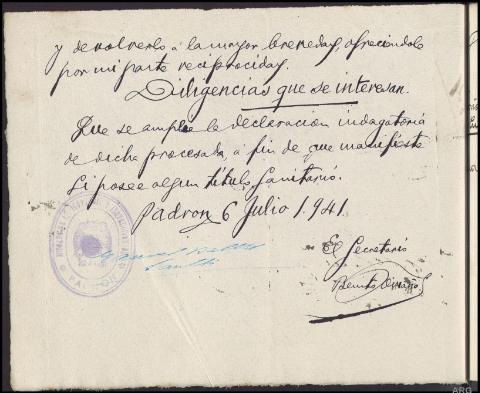 y de volverlo á la mayor brevedad, ofreciendole
por mi parte reciprocidad.
Diligencias que se interesan.
Que se amplie la declaración indagatoria
de dicha procesada, a fin de que manifieste
si posee algun título Sanitario.
Padron 6 Julio 1.941
El Secretario
Benito
PADRON
ARG